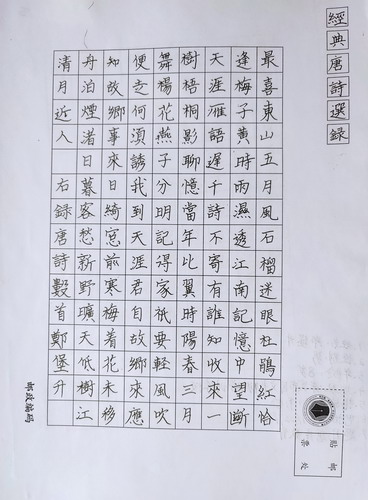 經典唐詩選錄
最喜東山五月風石榴迷眼杜鵑紅恰
逢梅子黃時雨濕透江南記憶中望斷
天涯雁語遲千詩不寄有誰知收來一
樹梧桐影聊憶當年比翼時陽春三月
舞楊花燕子分明記得家祇要輕風吹
便走何須誘我到天涯君自故鄉來應
知故鄉事來日綺窓前寒梅着花未移
舟泊煙渚日暮客愁新野曠天低樹江
清月近人 右錄唐詩數首鄭堡升
貼郵
票處
郵政編碼